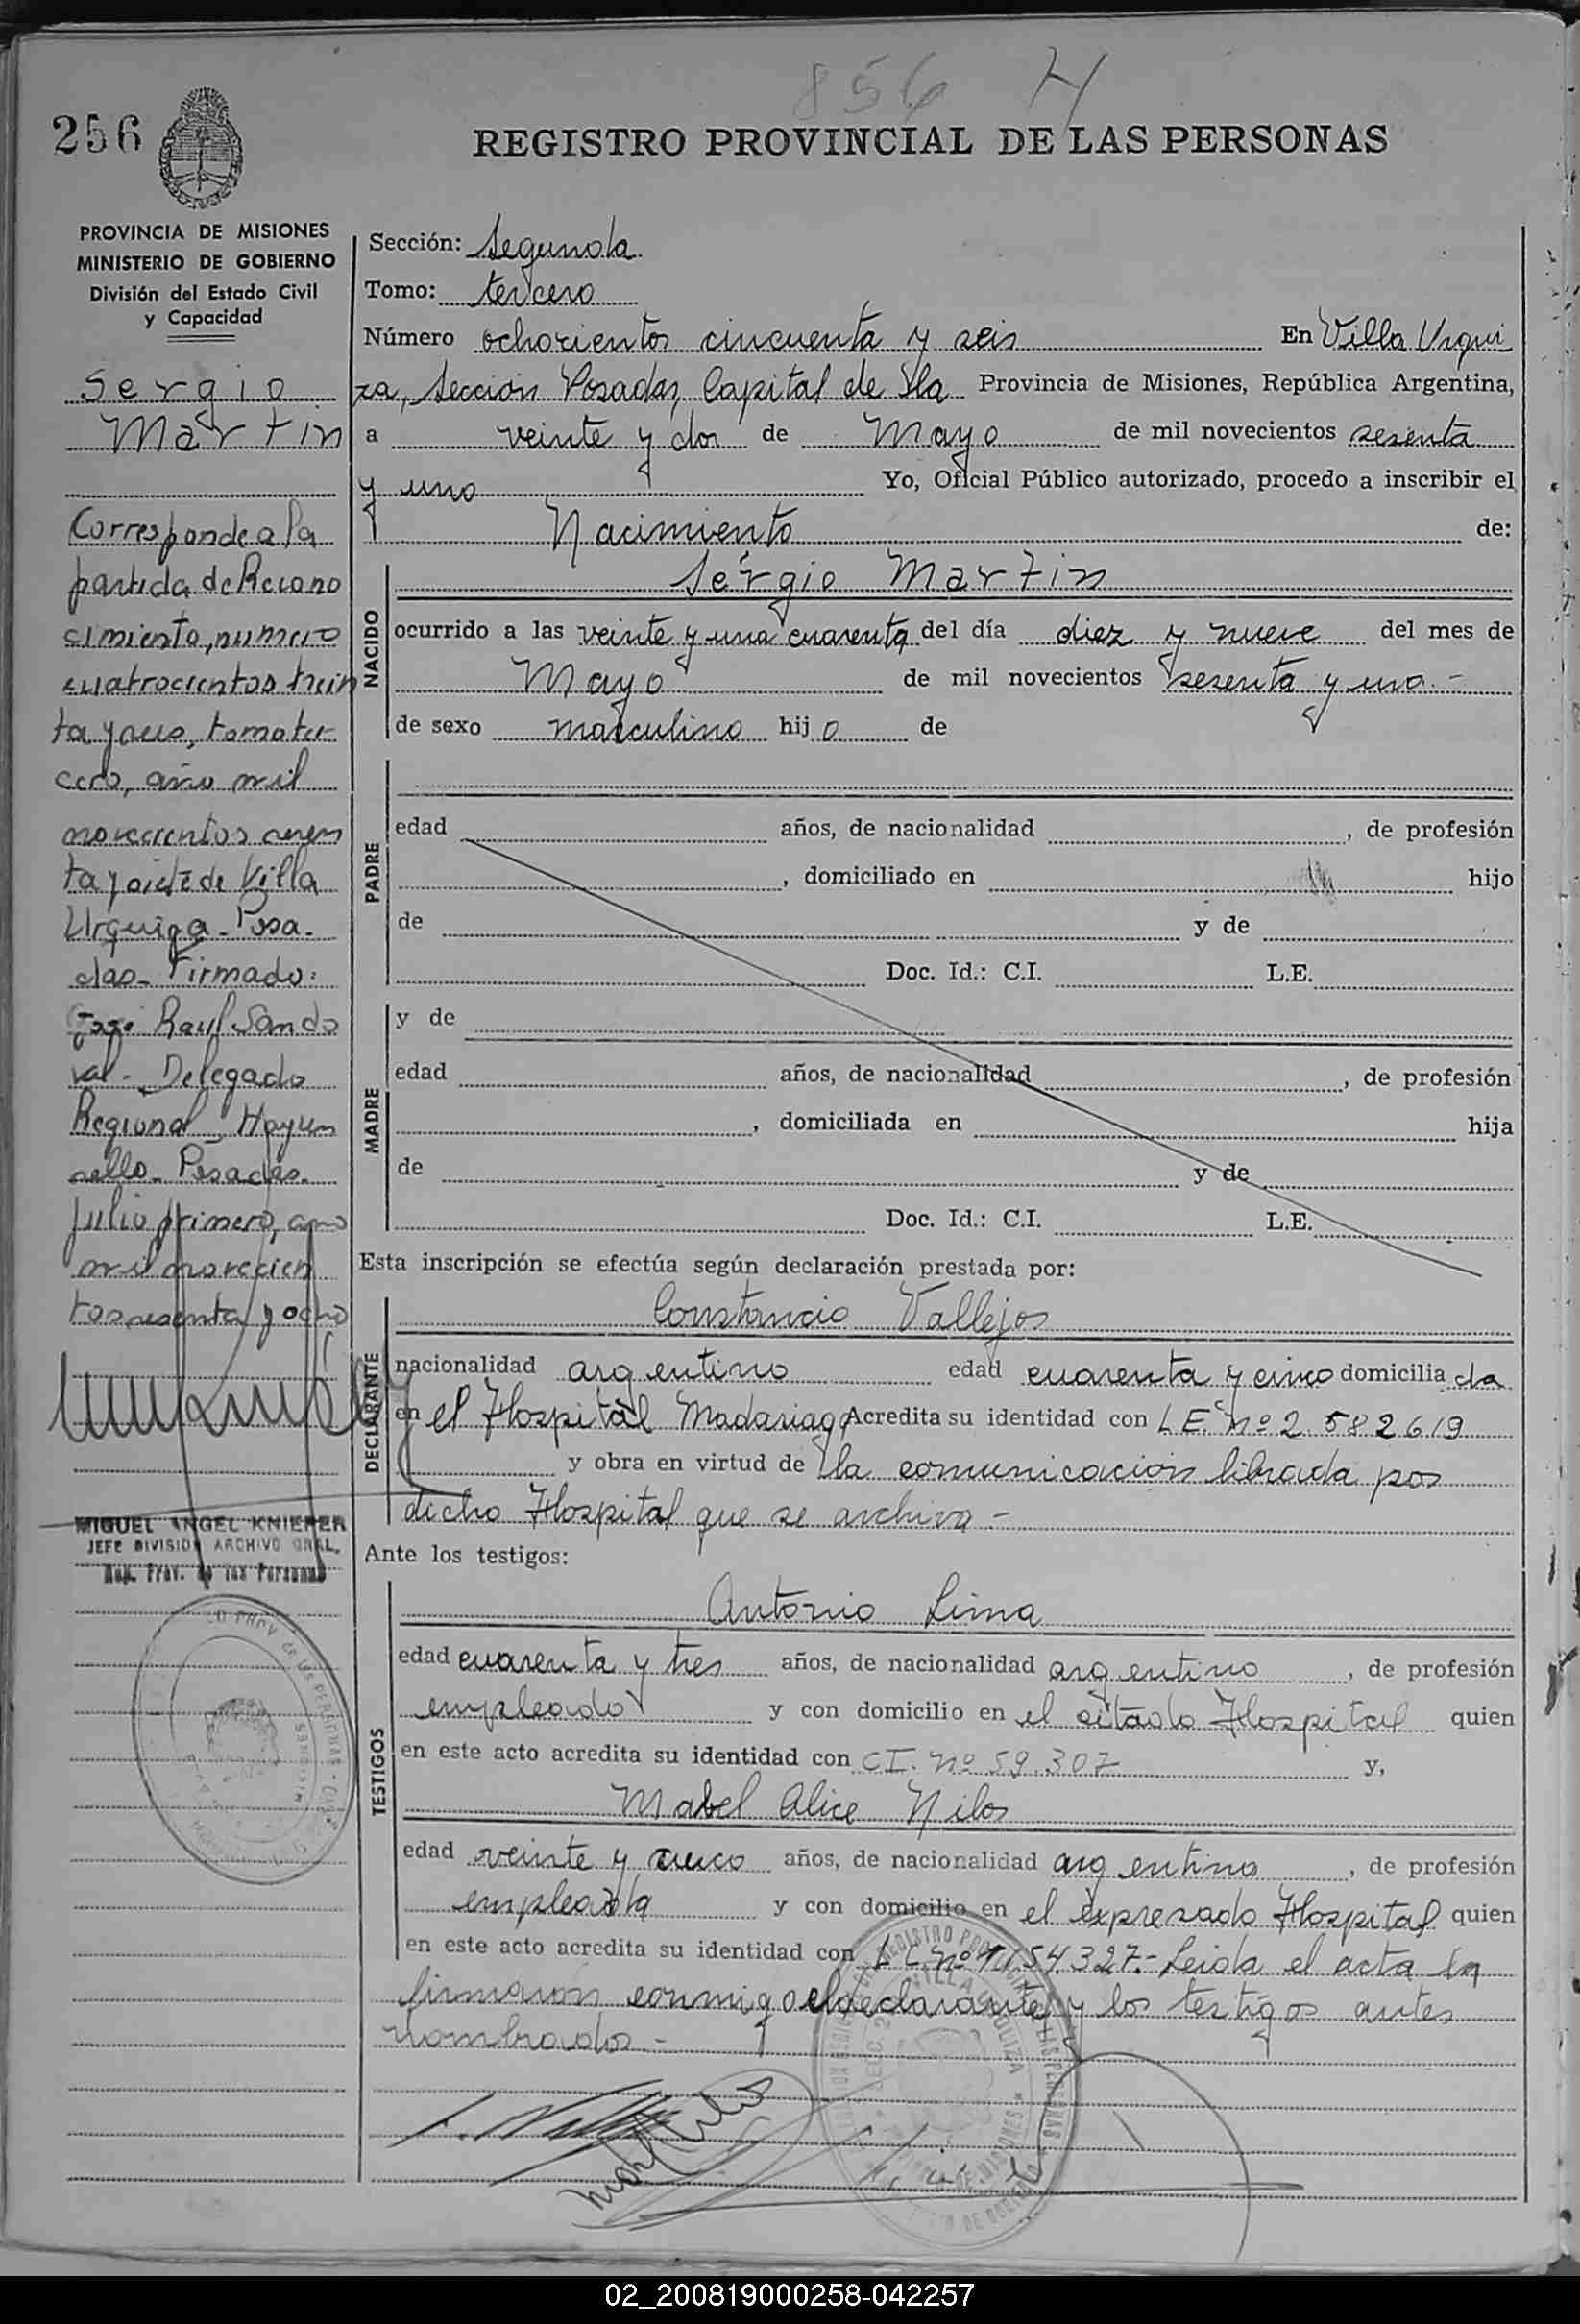 856 H
256
REGISTRO PROVINCIAL DE LAS PERSONAS
PROVINCIA DE MISIONES
MINISTERIO DE GOBIERNO
División del Estado Civil
y Capacidad
Sergio
Martin
Corresponde a la
partida de Recono
cimiento, numero
cuatrocientos trein
ta y seis, tomo ter
cero, año mil
novecientos
ta y siete de Villa
Urquiza - Posa-
das - Firmado:
José Raul Sando
val - Delegado
Regional - Hay un
sello - Posadas.
Julio primero, año
mil novecien
tos sesenta y ocho
MIGUEL ANGEL KNIEPER
JEFE DIVISION ARCHIVO GRAL.
Reg. Prov. de las Personas
Sección: Segunda
Tomo: tercero
Número ochocientos cincuenta y seis En Villa Urqui
za, Sección Posadas, Capital de la Provincia de Misiones, República Argentina,
a veinte y dos de Mayo de mil novecientos sesenta
y uno Yo, Oficial Público autorizado, procedo a inscribir el
Nacimiento de:
NACIDO
Sergio Martin
ocurrido a las veinte y una cuarenta del día diez y nueve del mes de
Mayo de mil novecientos sesenta y uno.-
de sexo masculino hijo de
PADRE
edad años, de nacionalidad , de profesión
, domiciliado en hijo
de y de
Doc. Id.: C.I. L.E.
MADRE
y de
edad años, de nacionalidad , de profesión
, domiciliada en hija
de y de
Doc. Id.: C.I. L.E.
Esta inscripción se efectúa según declaración prestada por:
DECLARANTE
Constancio Vallejos
nacionalidad argentino edad cuarenta y cinco domicilia da
en el Hospital Madariaga Acredita su identidad con L.E. Nº 2.582619
y obra en virtud de la comunicación librada por
dicho Hospital que se archiva.-
Ante los testigos:
TESTIGOS
Antonio Lima
edad cuarenta y tres años, de nacionalidad argentino , de profesión
empleado y con domicilio en el citado Hospital quien
en este acto acredita su identidad con C.I. Nº 59.307 y,
Mabel Alice Nilos
edad veinte y cinco años, de nacionalidad argentina , de profesión
empleada y con domicilio en el expresado Hospital quien
en este acto acredita su identidad con L.C. Nº 1.154.327.- Leida el acta la
firmaron conmigo el declarante y los testigos antes
nombrados.-
02_200819000258-042257